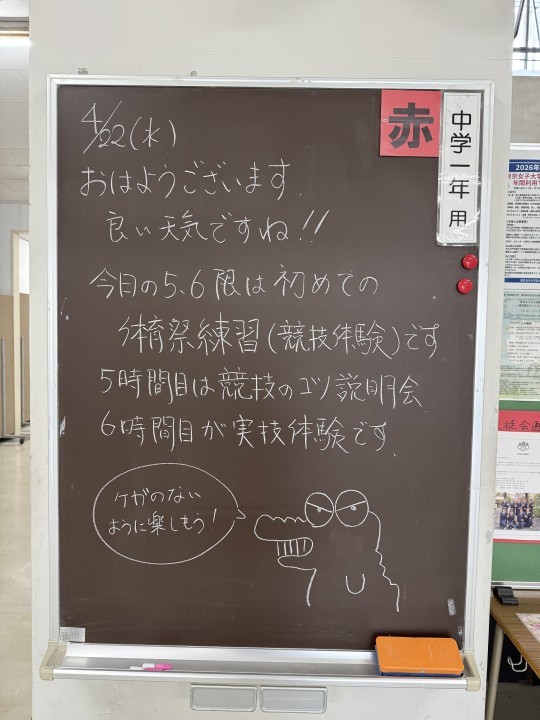 4/22(水)
おはようございます.
良い天気ですね!!
今日の5、6限は初めての
体育祭練習(競技体験)です
5時間目は競技のコツ説明会
6時間目が実技体験です.
ケガのない
ように楽しもう!
赤
中学一年用
2026年